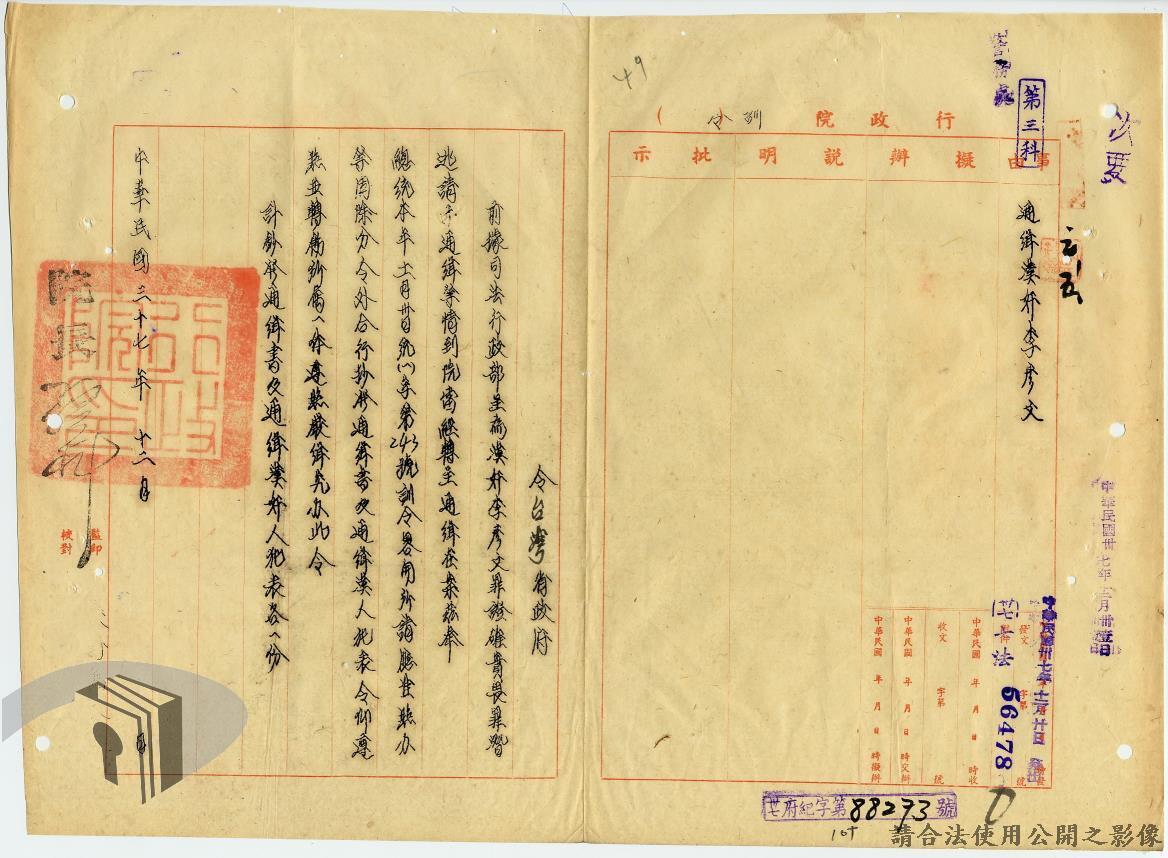 次要
警務處
第三科
49
行政院 訓令 ( )
事由 擬辦 說明 批示
通緝漢奸李彥文
中華民國卅七年
中華民國卅七年十二月廿日
發文
七法 56478 號
中華民國 年 月 日 時收
收文 字第 號
中華民國 年 月 日 時交辦
中華民國 年 月 日 時擬辦
府紀字第88293號
令台灣省政府
前據司法行政部呈為漢奸李彥文罪證確實畏罪潛
逃請予通緝等情到院當經轉呈通緝在案茲奉
總統本年十一月廿日統(一)字第243號訓令畧開所請應准照办
等因除分令外合行抄發通緝書及通緝漢人犯表令仰遵
照並轉飭所屬一体遵照嚴緝究办此令
計鈔發通緝書及通緝漢奸人犯表各一份
中華民國三十七年十二月 日
院長
監印
校對
請合法使用公開之影像